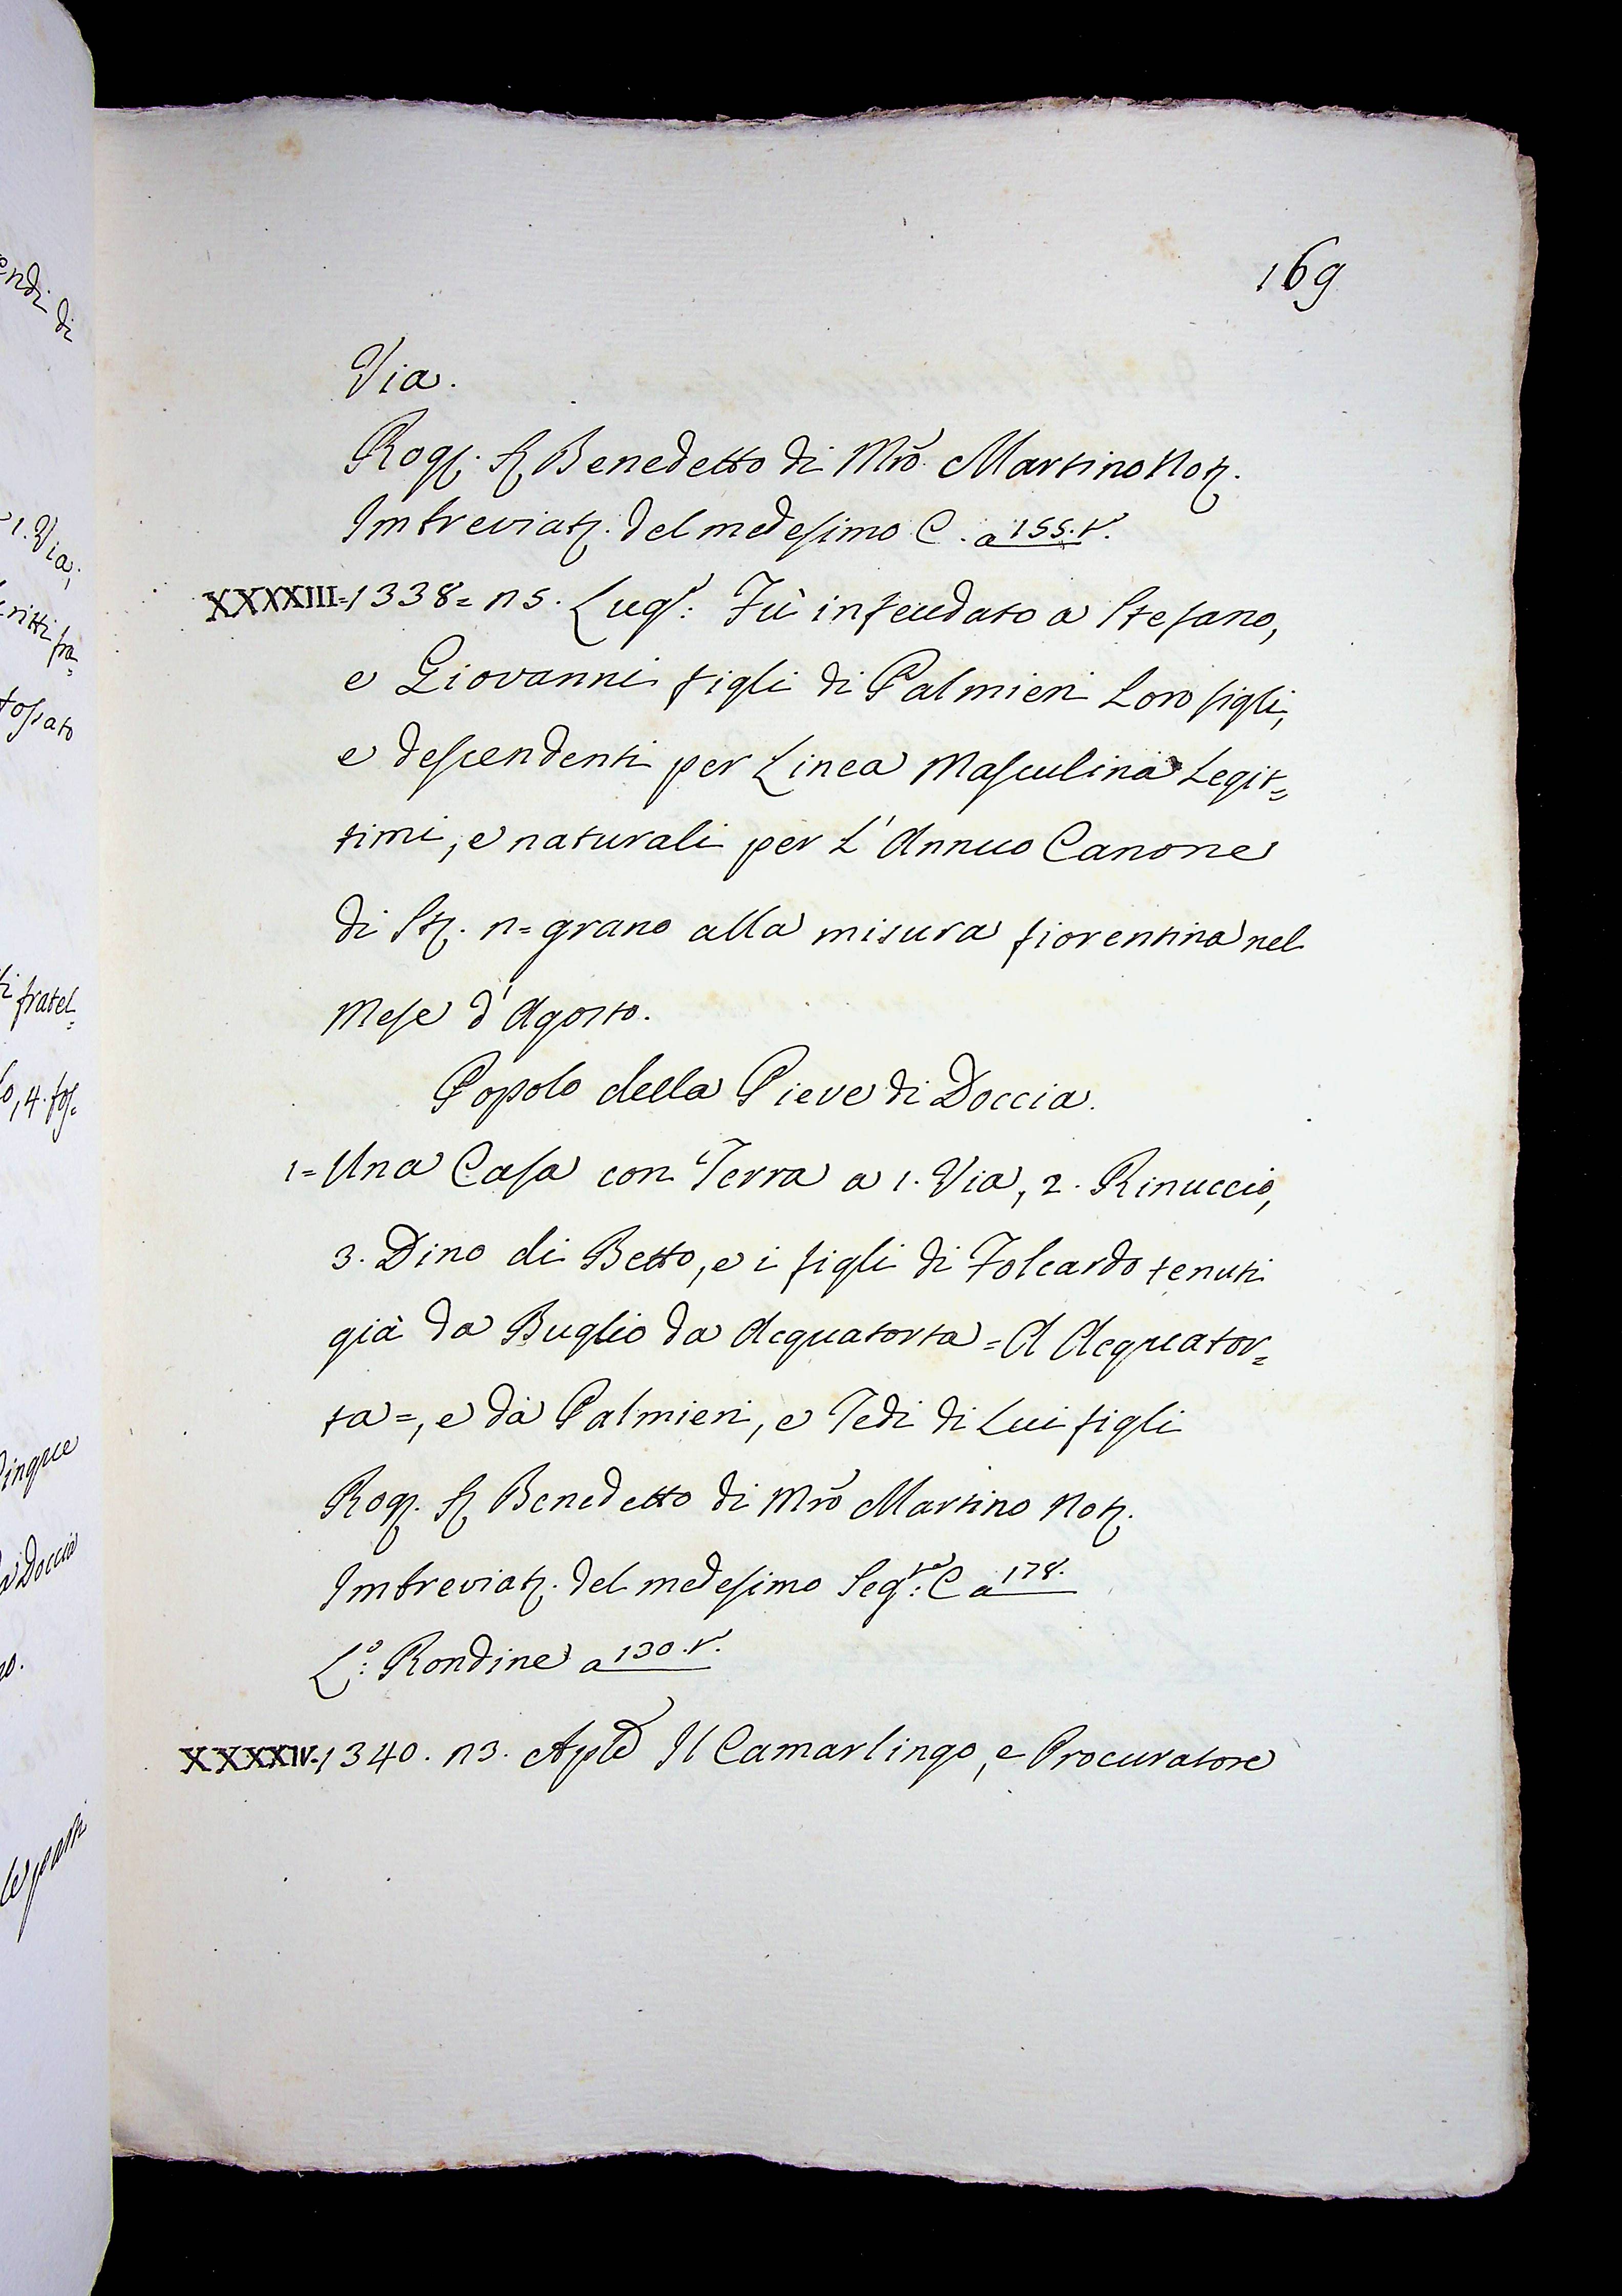 169
Via.
Rog. S. Benedetto di Mrõ. Martino Not.
Imbreviat. del medesimo C. a 155. v.
XXXXIII=1338= 15. Lug: Fù infeudato a Stefano,
e Giovanni figli di Palmieri Loro figli,
e descendenti per Linea Masculina Legit=
timi, e naturali per L'Annuo Canone
di St. 11= grano alla misura fiorentina nel
Mese d'Agosto.
Popolo della Pieve di Doccia.
1= Una Casa con Terra a 1. Via, 2. Rinuccio,
3. Dino di Betto, e i figli di Folcardo tenuti
già da Buglio da Acquatorta = A Acquator=
ta=, e da Palmieri, e Tedi di Lui figli
Rog. S. Benedetto di Mrõ Martino Not.
Imbreviat. del medesimo Seg.to: C a 178.
L.o: Rondine a 130. v.
XXXXIV=1340. 13. Aple Il Camarlingo, e Procuratore
endi di
1. Via,
ritti fra=
fossato
i fratel=
o, 4. fos=
Cinque
Doccia